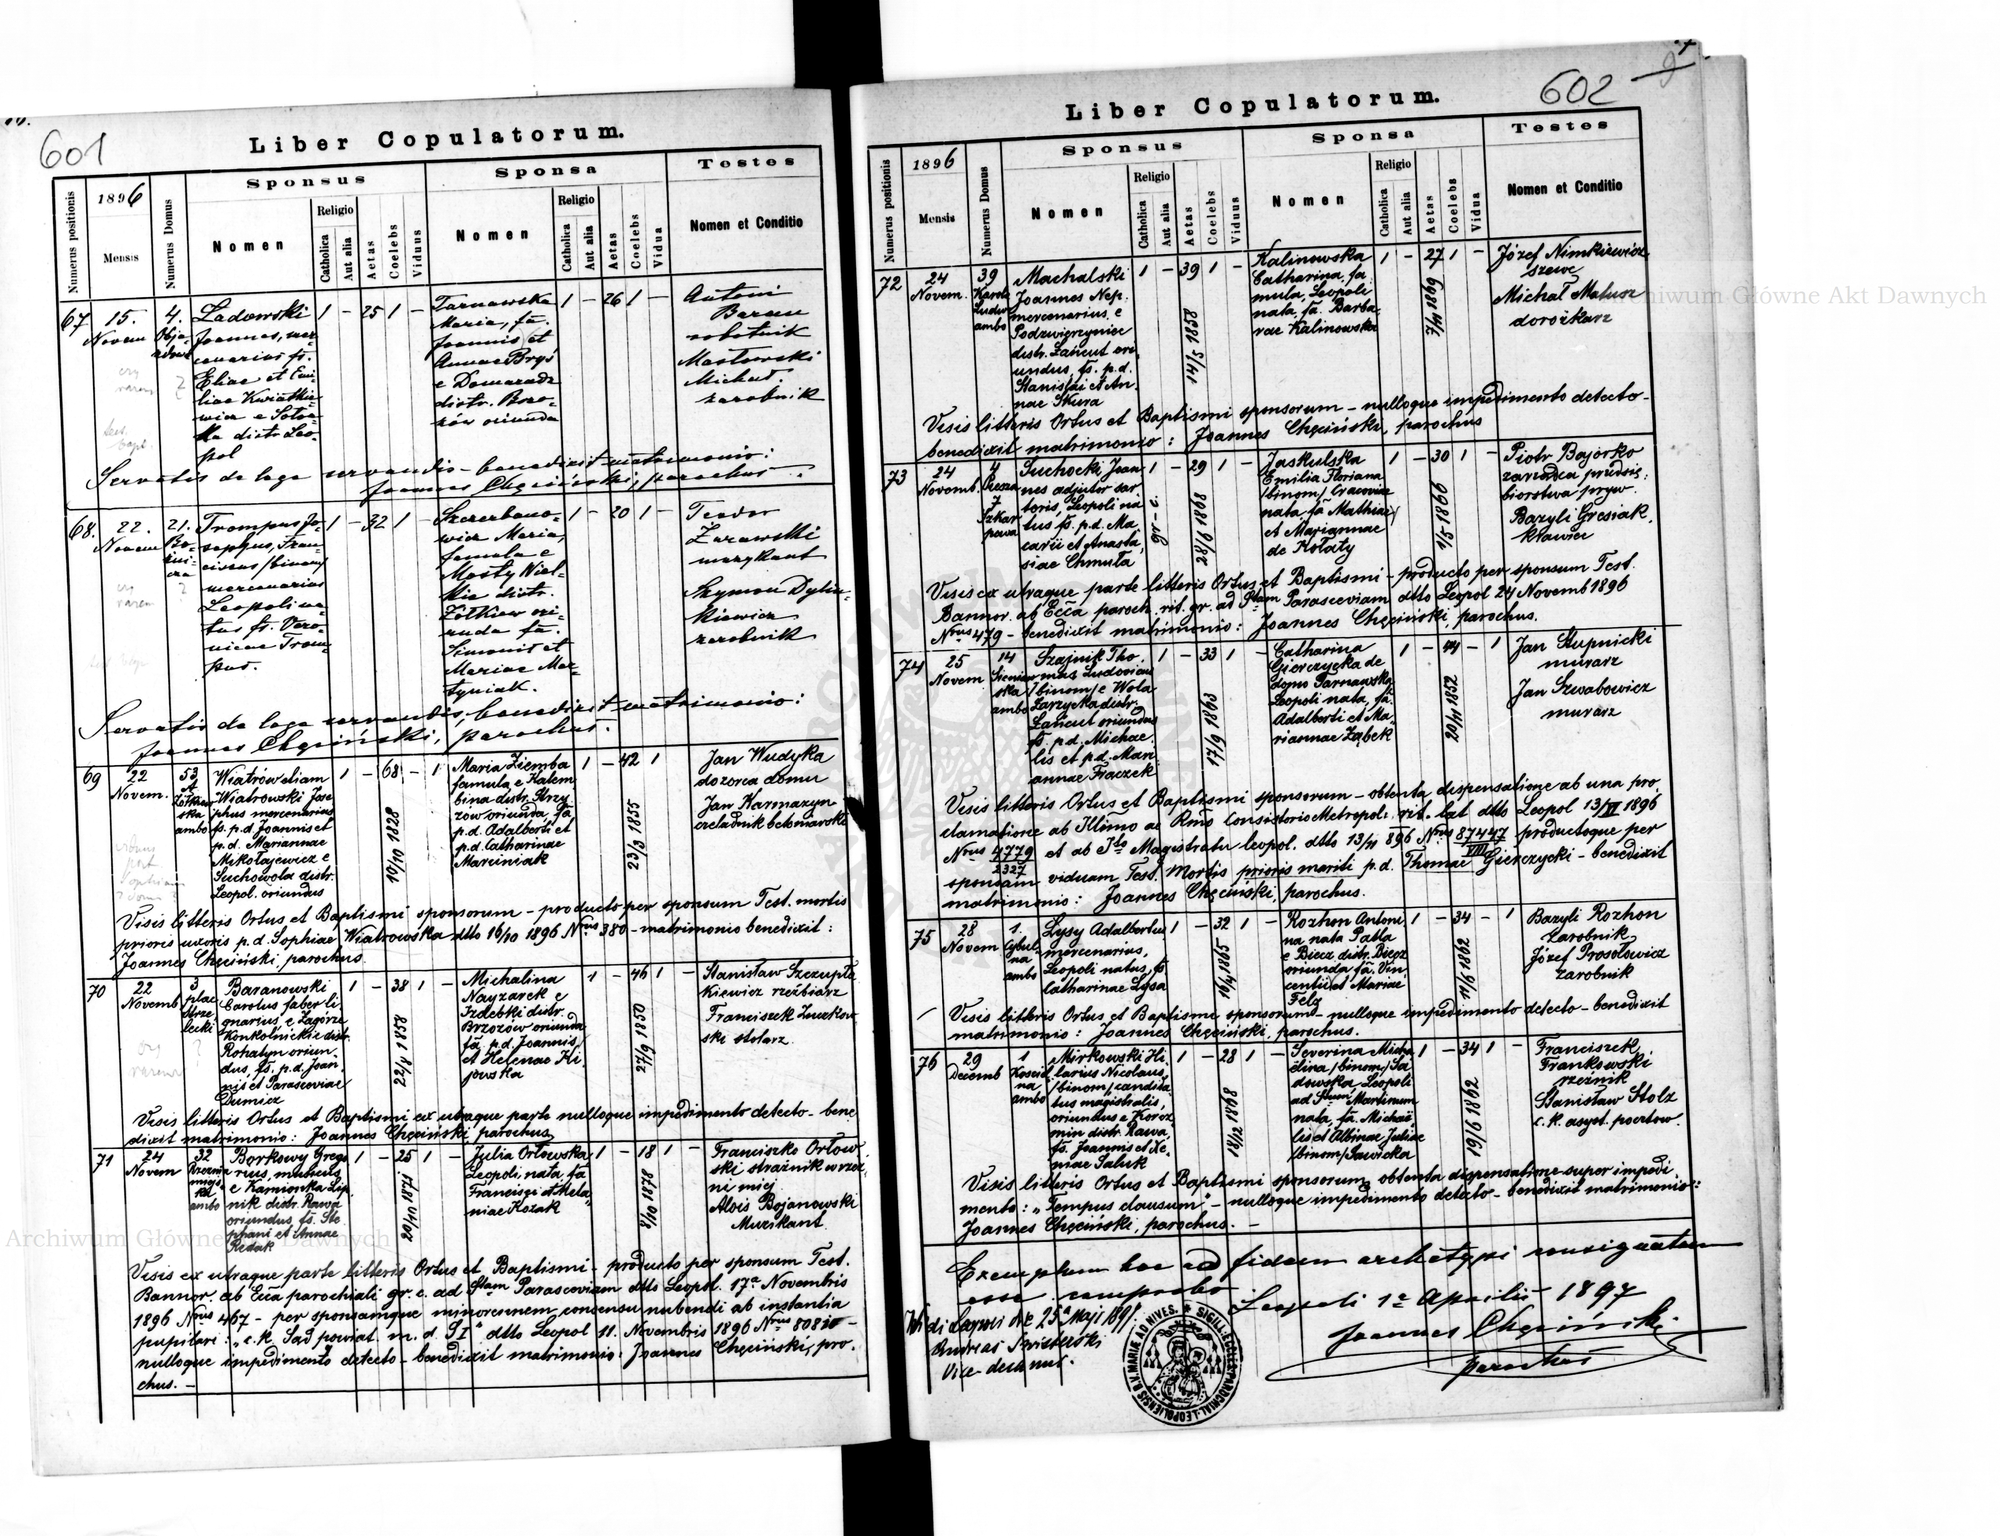 601
Liber Copulatorum.
Numerus positionis
1896
Mensis
Numerus Domus
Sponsus
Nomen
Religio
Catholica
Aut alia
Aetas
Coelebs
Viduus
Sponsa
Nomen
Religio
Catholica
Aut alia
Aetas
Coelebs
Vidua
Testes
Nomen et Conditio
67
15.
Novem
4.
Ladowski
Joannes, mer-
cenarius fs.
Eliae et Emi-
liae Kwiatkie-
wicz e
distr. Leo-
pol
1 - 25 1 -
Tarnawska
Maria, fa.
Joannis et
Annae Bryś
e Domaradz
distr. Brzo-
zów oriunda
1 - 26 1 -
Antoni
Baran
robotnik
Masłowski
Michał
zarobnik
Servatis de lege servandis - benedixit matrimonio:
Joannes Chęciński, parochus
68.
22.
Novem
21.
Trompus Jo-
sephus, Fran-
ciscus /binom/
mercenarius
Leopoli na-
tus fs. Vero-
nicae Trom-
pus.
1 - 32 1 -
Szczerbano-
wicz Maria,
famula e
Mosty Wiel-
kie distr.
Żółkiew ori-
unda fa.
Simonis et
Mariae Mar-
tyniak.
1 - 20 1 -
Teodor
Żurawski
muzykant
Szymon Dylin-
kiewicz
zarobnik
Servatis de lege servandis, benedixit matrimonio:
Joannes Chęciński, parochus.
69
22
Novem.
53
A
Żółkiew
ska
ambo
Wiatrów aliam
Wiatrowski Jose
phus mercenarius
fs. p.d. Joannis et
p.d. Mariannae
Mikołajewicz e
Suchowola distr.
Leopol. oriundus
1 - 68 - 1
10/10 1828
Maria Ziemba
famula e Kalem
bina distr. Strzy
zów oriunda, fa
p.d. Adalberti et
p.d. Catharinae
Marciniak
1 - 42 1
23/3 1855
Jan Wudyka
dozorca domu
Jan Karmazyn
czeladnik betoniarski
Visis litteris Ortus et Baptismi sponsorum - producto per sponsum Test. mortis
prioris uxoris p.d. Sophiae Wiatrowska dtto 16/10 1896 Nrus 380 - matrimonio benedixit:
Joannes Chęciński, parochus.
70
22
Novemb
3
plac
Strze
lecki
Baranowski
Carolus faber li
gnarius, e Zagórze
Konkolnickie distr.
Rohatyn oriun-
dus, fs. p.d. Joan
nis et Parasceviae
Dumicz
1 - 38 1 -
22/8 1858
Michalina
Nayzarek e
Izdebki distr.
Brzozów oriunda
fa. p.d. Joannis
et Helenae Ki
jowska
1 - 46 1 -
27/9 1850
Stanisław Szczupta
kiewicz rzeźbiarz
Franciszek Luczkow
ski stolarz
Visis litteris Ortus et Baptismi ex utraque parte nulloque impedimento detecto - bene
dixit matrimonio: Joannes Chęciński, parochus
71
24
Novem
32
ambo
Borkowy Grego
rius, murarius
e Kamionka Lip
nik distr. Rawa
oriundus, fs. Ste
phani et Annae
Redak
1 - 25 1 -
20/11 1871
Julia Orłowska
Leopoli nata, fa
Francisci et Mela
niae Kozak
1 - 18 1 -
8/10 1878
Franciszko Orłow
ski strażnik w rzeź
ni miej.
Alois Bojanowski
Muzikant.
Visis ex utraque parte litteris Ortus et Baptismi - producto per sponsum Test.
Bannor. ab Ecca parochiali gr. c. ad Stam Parasceviam dtto Leopol. 17a Novembris
1896 Nrus 467 - per sponsamque minorennem concensu nubendi ab instantia
pupilari: „c.k. Sąd powiat. m. d. S I" dtto Leopol 11. Novembris 1896 Nrus 80810 -
nulloque impedimento detecto - benedixit matrimonio: Joannes Chęciński, pro.
chus. -
602
Liber Copulatorum.
Numerus positionis
1896
Mensis
Numerus Domus
Sponsus
Nomen
Religio
Catholica
Aut alia
Aetas
Coelebs
Viduus
Sponsa
Nomen
Religio
Catholica
Aut alia
Aetas
Coelebs
Vidua
Testes
Nomen et Conditio
72
24
Novem.
39
Karola
Ludw
ambo
Machalski
Joannes Nep.
mercenarius, e
Podzwierzyniec
distr. Łańcut ori
undus, fs. p.d.
Stanislai et An
nae Skura
1 - 39 1 -
14/5 1858
Kalinowska
Catharina, fa
mula, Leopoli
nata, fa. Barba
rae Kalinowska
1 - 27 1 -
7/11 1869
Józef Nimkiewicz
szewc
Michał Matusz
dorożkarz
Visis litteris Ortus et Baptismi sponsorum - nulloque impedimento detecto -
benedixit matrimonio: Joannes Chęciński, parochus
73
24
Novemb.
4
7
Szkar
powa
Suchocki Joan
nes adjutor sar
toris, Leopoli na
tus fs. p.d. Ma
carii et Anasta
siae Chmuła
1 - 29 1 -
gr-c.
28/6 1868
Jaskulska
Emilia Floriana
/binom/ Cracoviae
nata, fa Mathiae
et Mariannae
de Kołaty
1 - 30 1 -
1/5 1866
Piotr Bajorko
zarządca przedsię:
biorstwa pryw.
Bazyli Gresiak,
kławiec
Visis ex utraque parte litteris Ortus et Baptismi - producto per sponsum Test.
Bannor. ab Ecca paroch. rit. gr. ad Stam Parasceviam dtto Leopol 24 Novemb 1896
Nrus 479 - benedixit matrimonio: Joannes Chęciński, parochus.
74
25
Novem
14
Sieniaw
ska
ambo
Szajnik Tho
mas Ludovicus
/binom/ e Wola
Zarzycka distr.
Łańcut oriundus
fs. p.d. Michae
lis et p.d. Mari
annae Frączek
1 - 33 1 -
17/9 1863
Catharina
Gierczycka de
domo Tarnawska
Leopoli nata, fa
Adalberti et Ma
riannae Ząbek
1 - 44 - 1
29/11 1852
Jan Słupnicki
murarz
Jan Szwabowicz
murarz
Visis litteris Ortus et Baptismi sponsorum - obtenta dispensatione ab una pro
clamatione ab Illmo ac Rmo Consistorio Metropol. rit. lat dtto Leopol 13/XI 1896
Nrus 4779/2327 et ab Ito Magistratu leopol. dtto 13/11 896 Nrus 87447/VIII productoque per
sponsam viduam Test. Mortis prioris mariti p.d. Thomae Gierczycki - benedixit
matrimonio: Joannes Chęciński, parochus.
75
28
Novem
1.
Cybul
na
ambo
Lysy Adalbertus
mercenarius,
Leopoli natus, fs.
Catharinae Lysa
1 - 32 1 -
16/4 1865
Rozhon Antoni
na nata Patla
e Biecz distr. Biecz
oriunda fa. Vin
centii et Mariae
Felz
1 - 34 - 1
11/6 1862
Bazyli Rozhon
zarobnik
Józef Prosołowicz
zarobnik
Visis litteris Ortus et Baptismi sponsorum - nulloque impedimento detecto - benedixit
matrimonio: Joannes Chęciński, parochus.
76
29
Decemb
1
na
ambo
Mirkowski Hi
larius Nicolaus
/binom/ candida
tus magistralis,
oriundus e Korcz
min distr. Rawa,
fs. Joannis et Xe
niae Saluk
1 - 28 1 -
18/12 1868
Severina Micha
elina /binom/ Sa
dowska, Leopoli
ad Stum Martinum
nata, fa. Michae
lis et Albinae Juliae
/binom/ Sawicka
1 - 34 1 -
19/6 1862
Franciszek
Frankowski
rzeźnik
Stanisław Stolz
c.k. asyst. pocztow.
Visis litteris Ortus et Baptismi sponsorum, obtenta dispensatione super impedi
mento: „Tempus clausum" - nulloque impedimento detecto - benedixit matrimonio:
Joannes Chęciński, parochus. -
Exemplum hoc ad fidem archetypi consignatum
esse comprobo
Leopoli 1a Aprilis 1897
Joannes Chęciński
parochus
Andreas Świsterski
Vice decanus.
SIGILL. ECCLES. PAROCHIAL. LEOPOLIENSIS B.V. MARIAE AD NIVES.
Archiwum Główne Akt Dawnych
Archiwum Główne Akt Dawnych